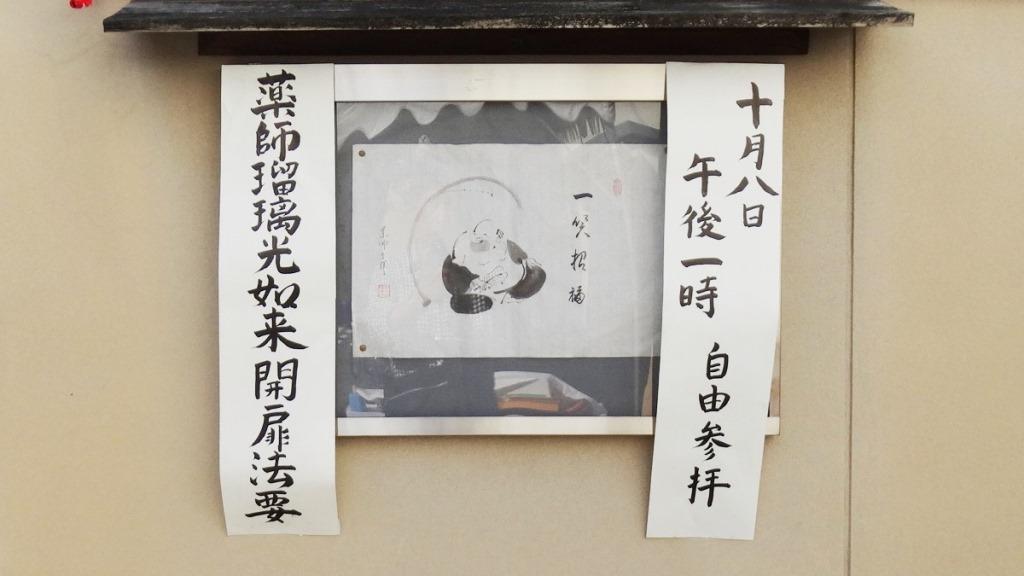 十月八日
午後一時 自由参拝
一笑招福
薬師瑠璃光如来開扉法要